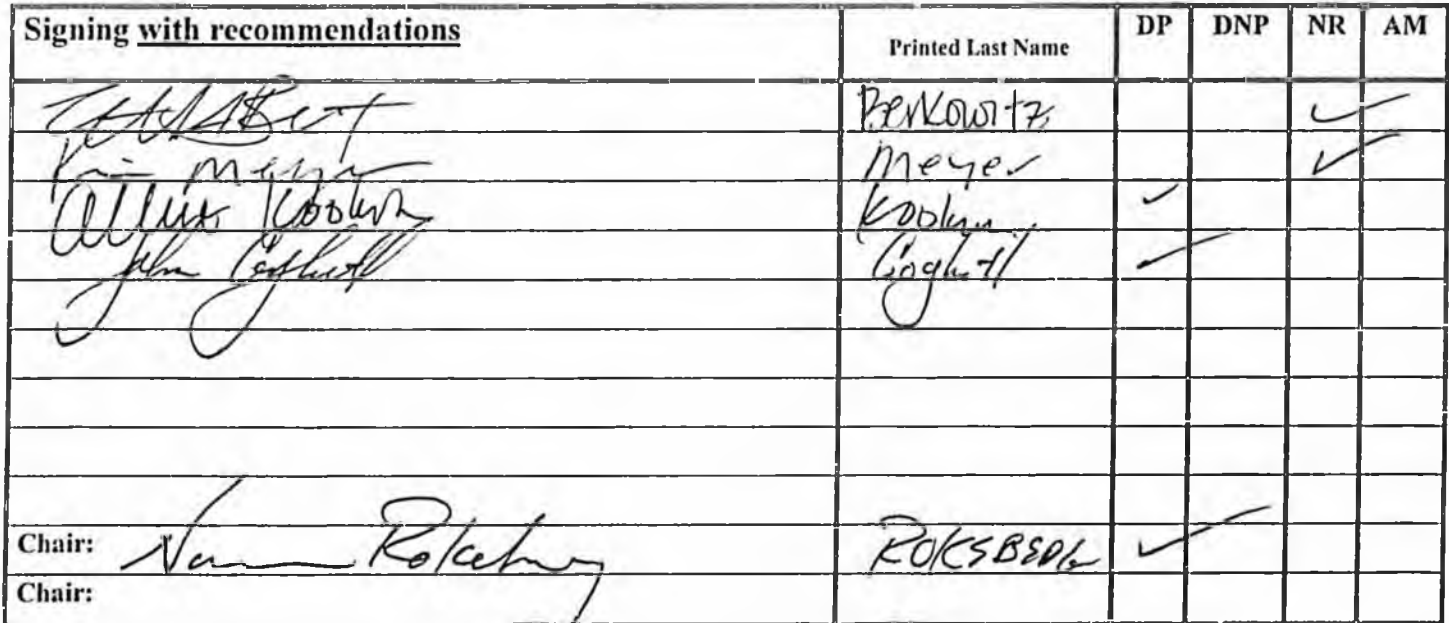 Signing with recommendations Printed Last Name DP DNP NR AM
Berkowitz ✓
Meyer Meyer ✓
Kookesh ✓
John Coghill Coghill ✓
Chair: Rokeberg ROKEBERG ✓
Chair: